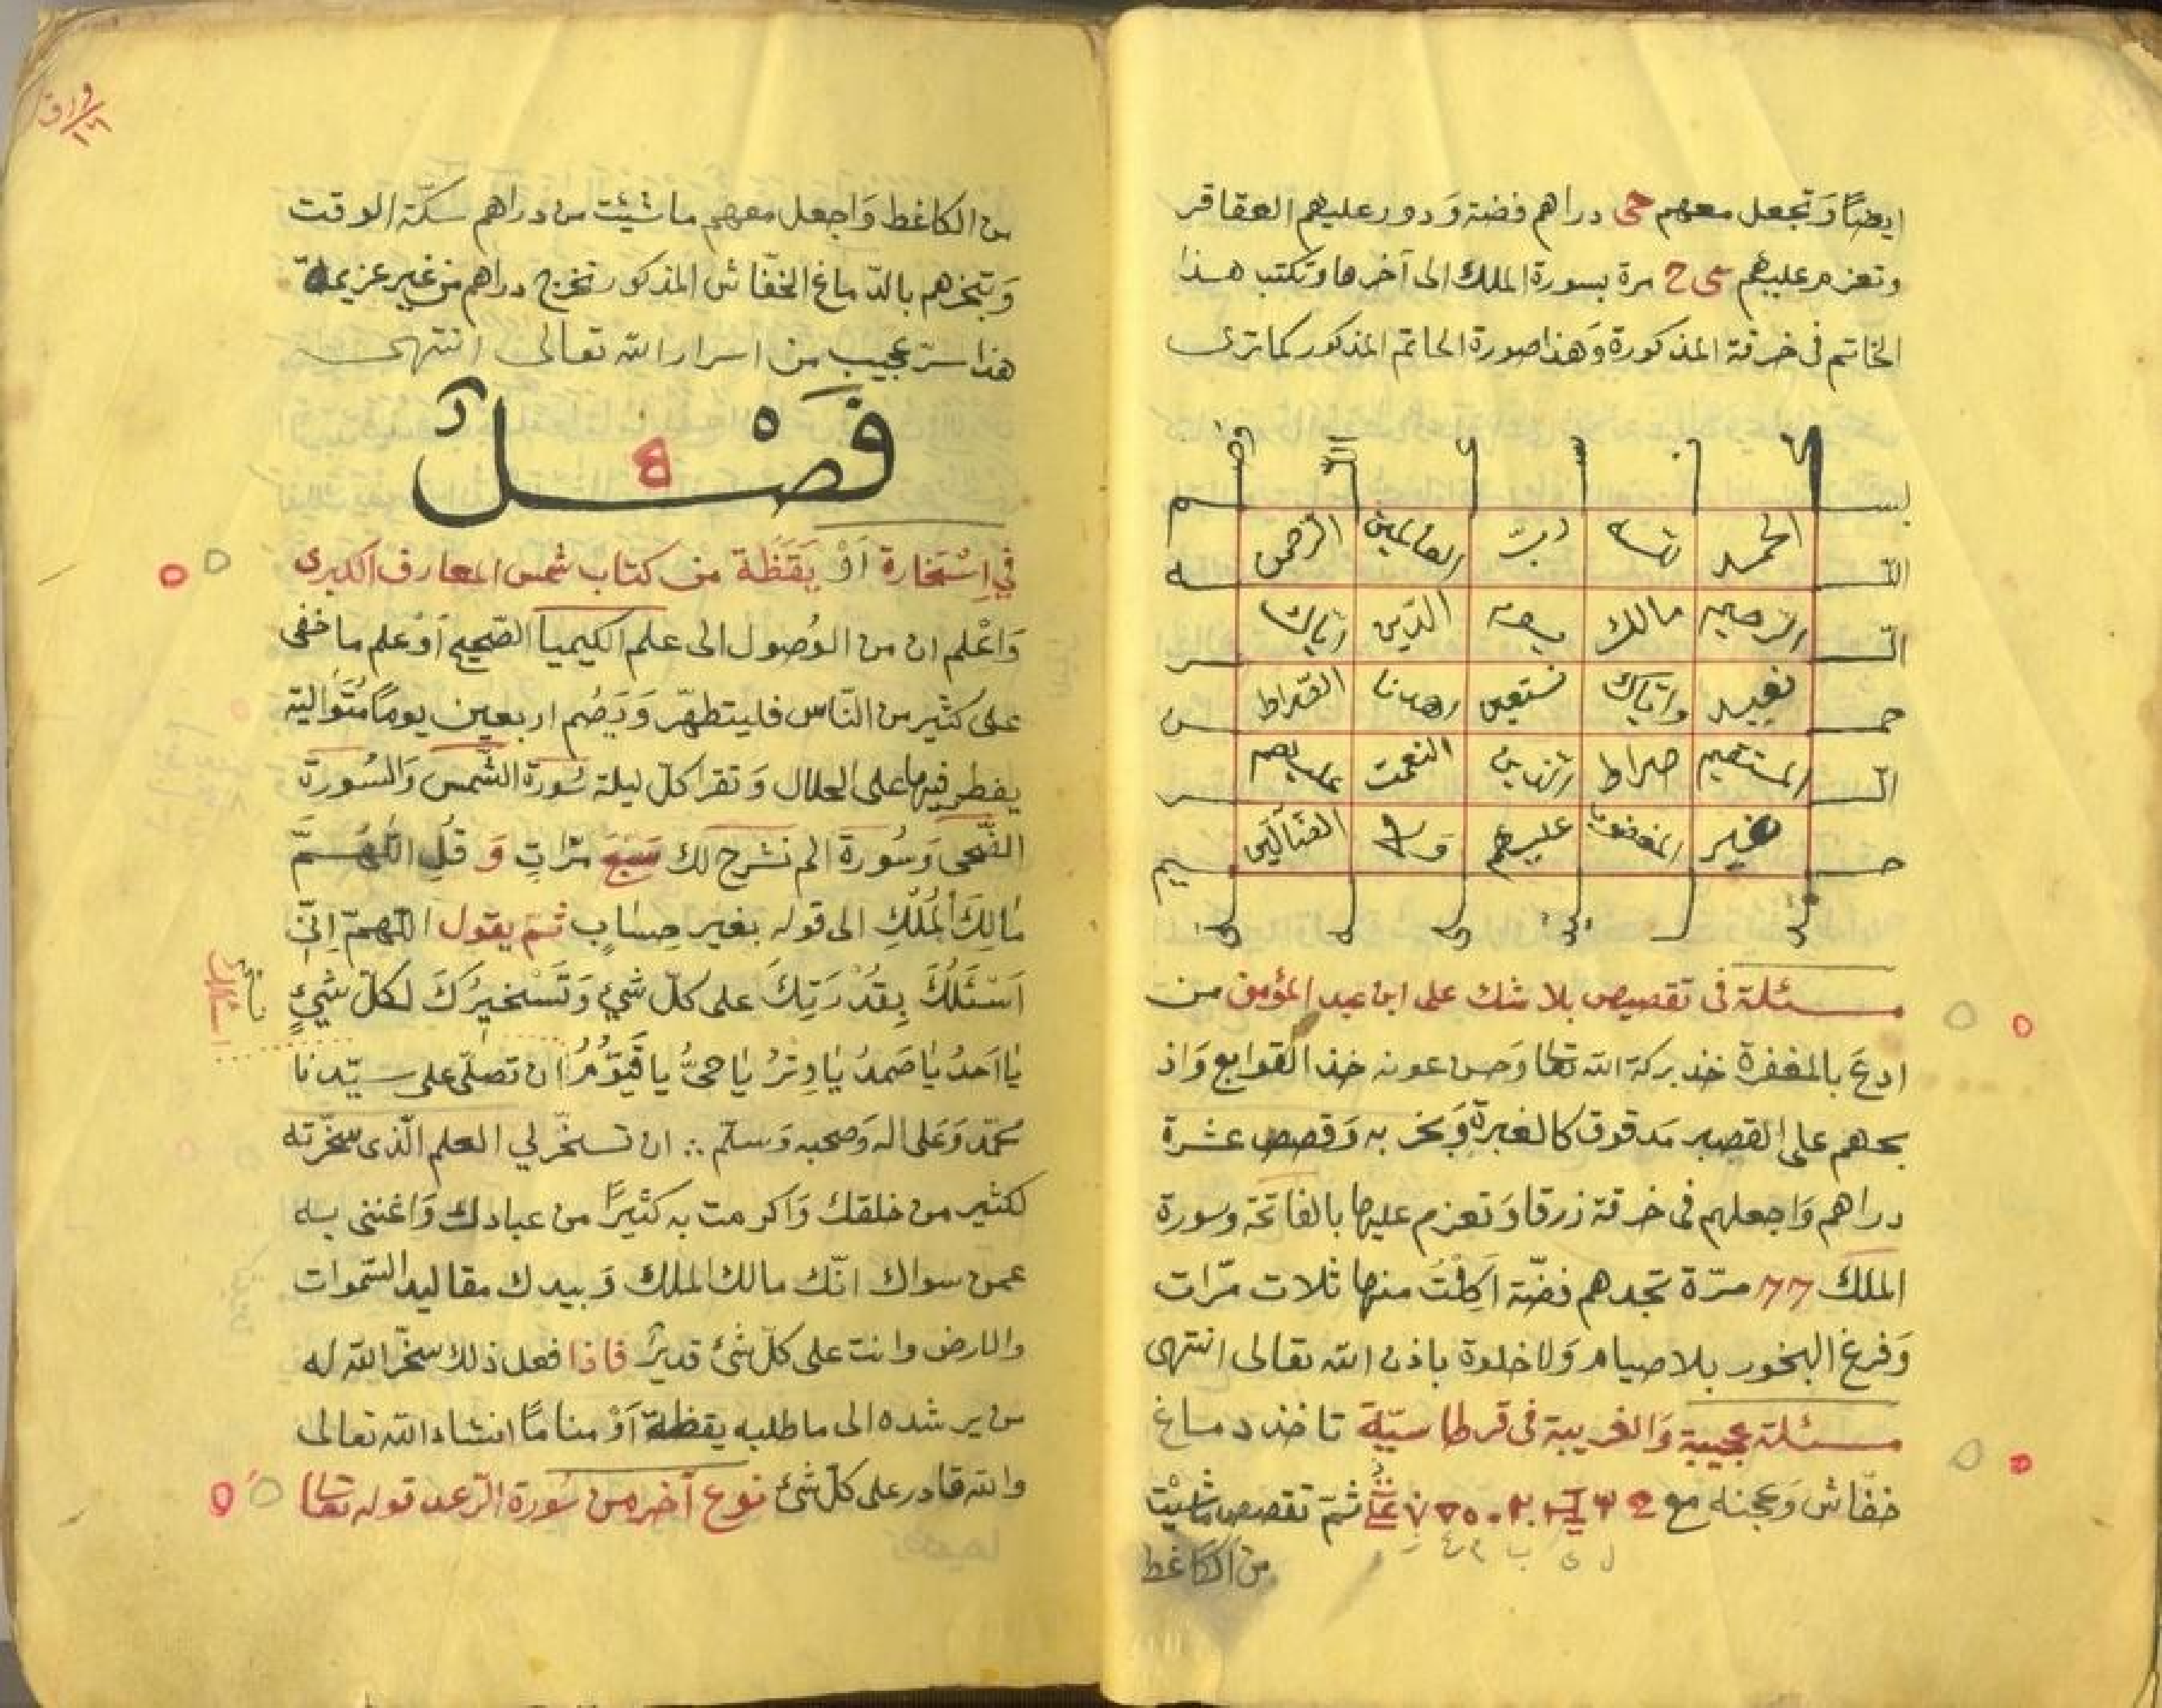 ايضًا وَتجعل معهم دراهم فضة وَدور عليهم العقاقر
وتعزم عليهم مرة بسورة الملك الى آخرها وتكتب هذا
الخاتم فى خرقة المذكورة وَهذا صورة الخاتم المذكور كما ترى
بسم
الله
الر
حمن
الر
حيم
الحمد لله ربّ العالمين الرّحمن
الرحيم مالك يوم الدّين ايّاك
نعبد واياك نستعين اهدنا الصّراط
المستقيم صراط الذين انعمت عليهم
غير المغضوب عليهم وَلا الضّآلّين
مسئلة فى تقصيص بلا شك على ابن عبد المؤمن من
ادعَ بالمغفرة خذ بركة الله تعا وَحسن عونه خذ القوابع وَاذ
بحهم على القصبر مَدقوق كالغبرة وَبخر به وَقصص عشرة
دراهم وَاجعلهم فى خرقة زرقا وَتعزم عليها بالفاتحة وسورة
الملك ٧٧ مرّة تجدهم فضّة منها ثلات مرّات
وَفرغ البخور بلا صيام وَلا خلوة باذن الله تعالى انتهى
مسئلة عجيبة وَالغريبة فى قرطاسيّة تاخذ دماغ
خفّاش وَعجنه مع ثمّ تقصص ماشيْت
من الكاغط
من الكاغط وَاجعل معهم ما شيئت من دراهم سكّة الوقت
وَتبخرهم بالدّماغ الخفّاش المذكور تخرج دراهم من غير عزيمة
هذا سرّ عجيب من اسرار الله تعالى انتهى
فَصْلٌ
في اِسْتخارة اَوْ يَقَظَة من كتاب شمس المعارف الكبرى
وَاعْلم ان من الوُصول الى علم الكيميا الصّحيح اَوْ علم ما خفى
على كثير من النّاس فليتطهّر وَيَصُم اربعين يومًا مُتَوالية
يفطر فيها على الحلال وَتقرا كلّ ليلة سُورة الشّمس وَالسُورة
الضّحى وَسُورة الم نشرح لك سَبعَ مرّاتٍ وَ قُلِ اللّهُمّ
مَالِكَ المُلْكِ الى قوله بغير حِسابٍ ثم يقول اللّهمّ اِنّي
اَسْئَلُكَ بِقُدْرَتِكَ على كلّ شيءٍ وَتَسْخيرَكَ لكلّ شيءٍ
يٰا اَحدُ يٰا صَمدُ يٰا وِترُ يٰا حيُّ يا قَيّوُمُ ان تصلّى على سيّدنا
محمّد وَعَلى اله وَصحبه وَسلّم ∴ ان تسخّر لي العلم الّذى سخّرته
لكثير من خلقك وَاكرمت به كثيرًا من عبادك وَاغننى به
عمن سواك انّك مالك الملك وَبيدك مقاليد السّموات
والارض وانت على كلّ شئ قديرٌ فاذا فعل ذلك سخّر الله له
من يرشده الى ما طلبه يقظةً اَوْ منامًا انشاء الله تعالى
والله قادر على كلّ شئ نوع آخر من سُورة الرّعد قوله تعا